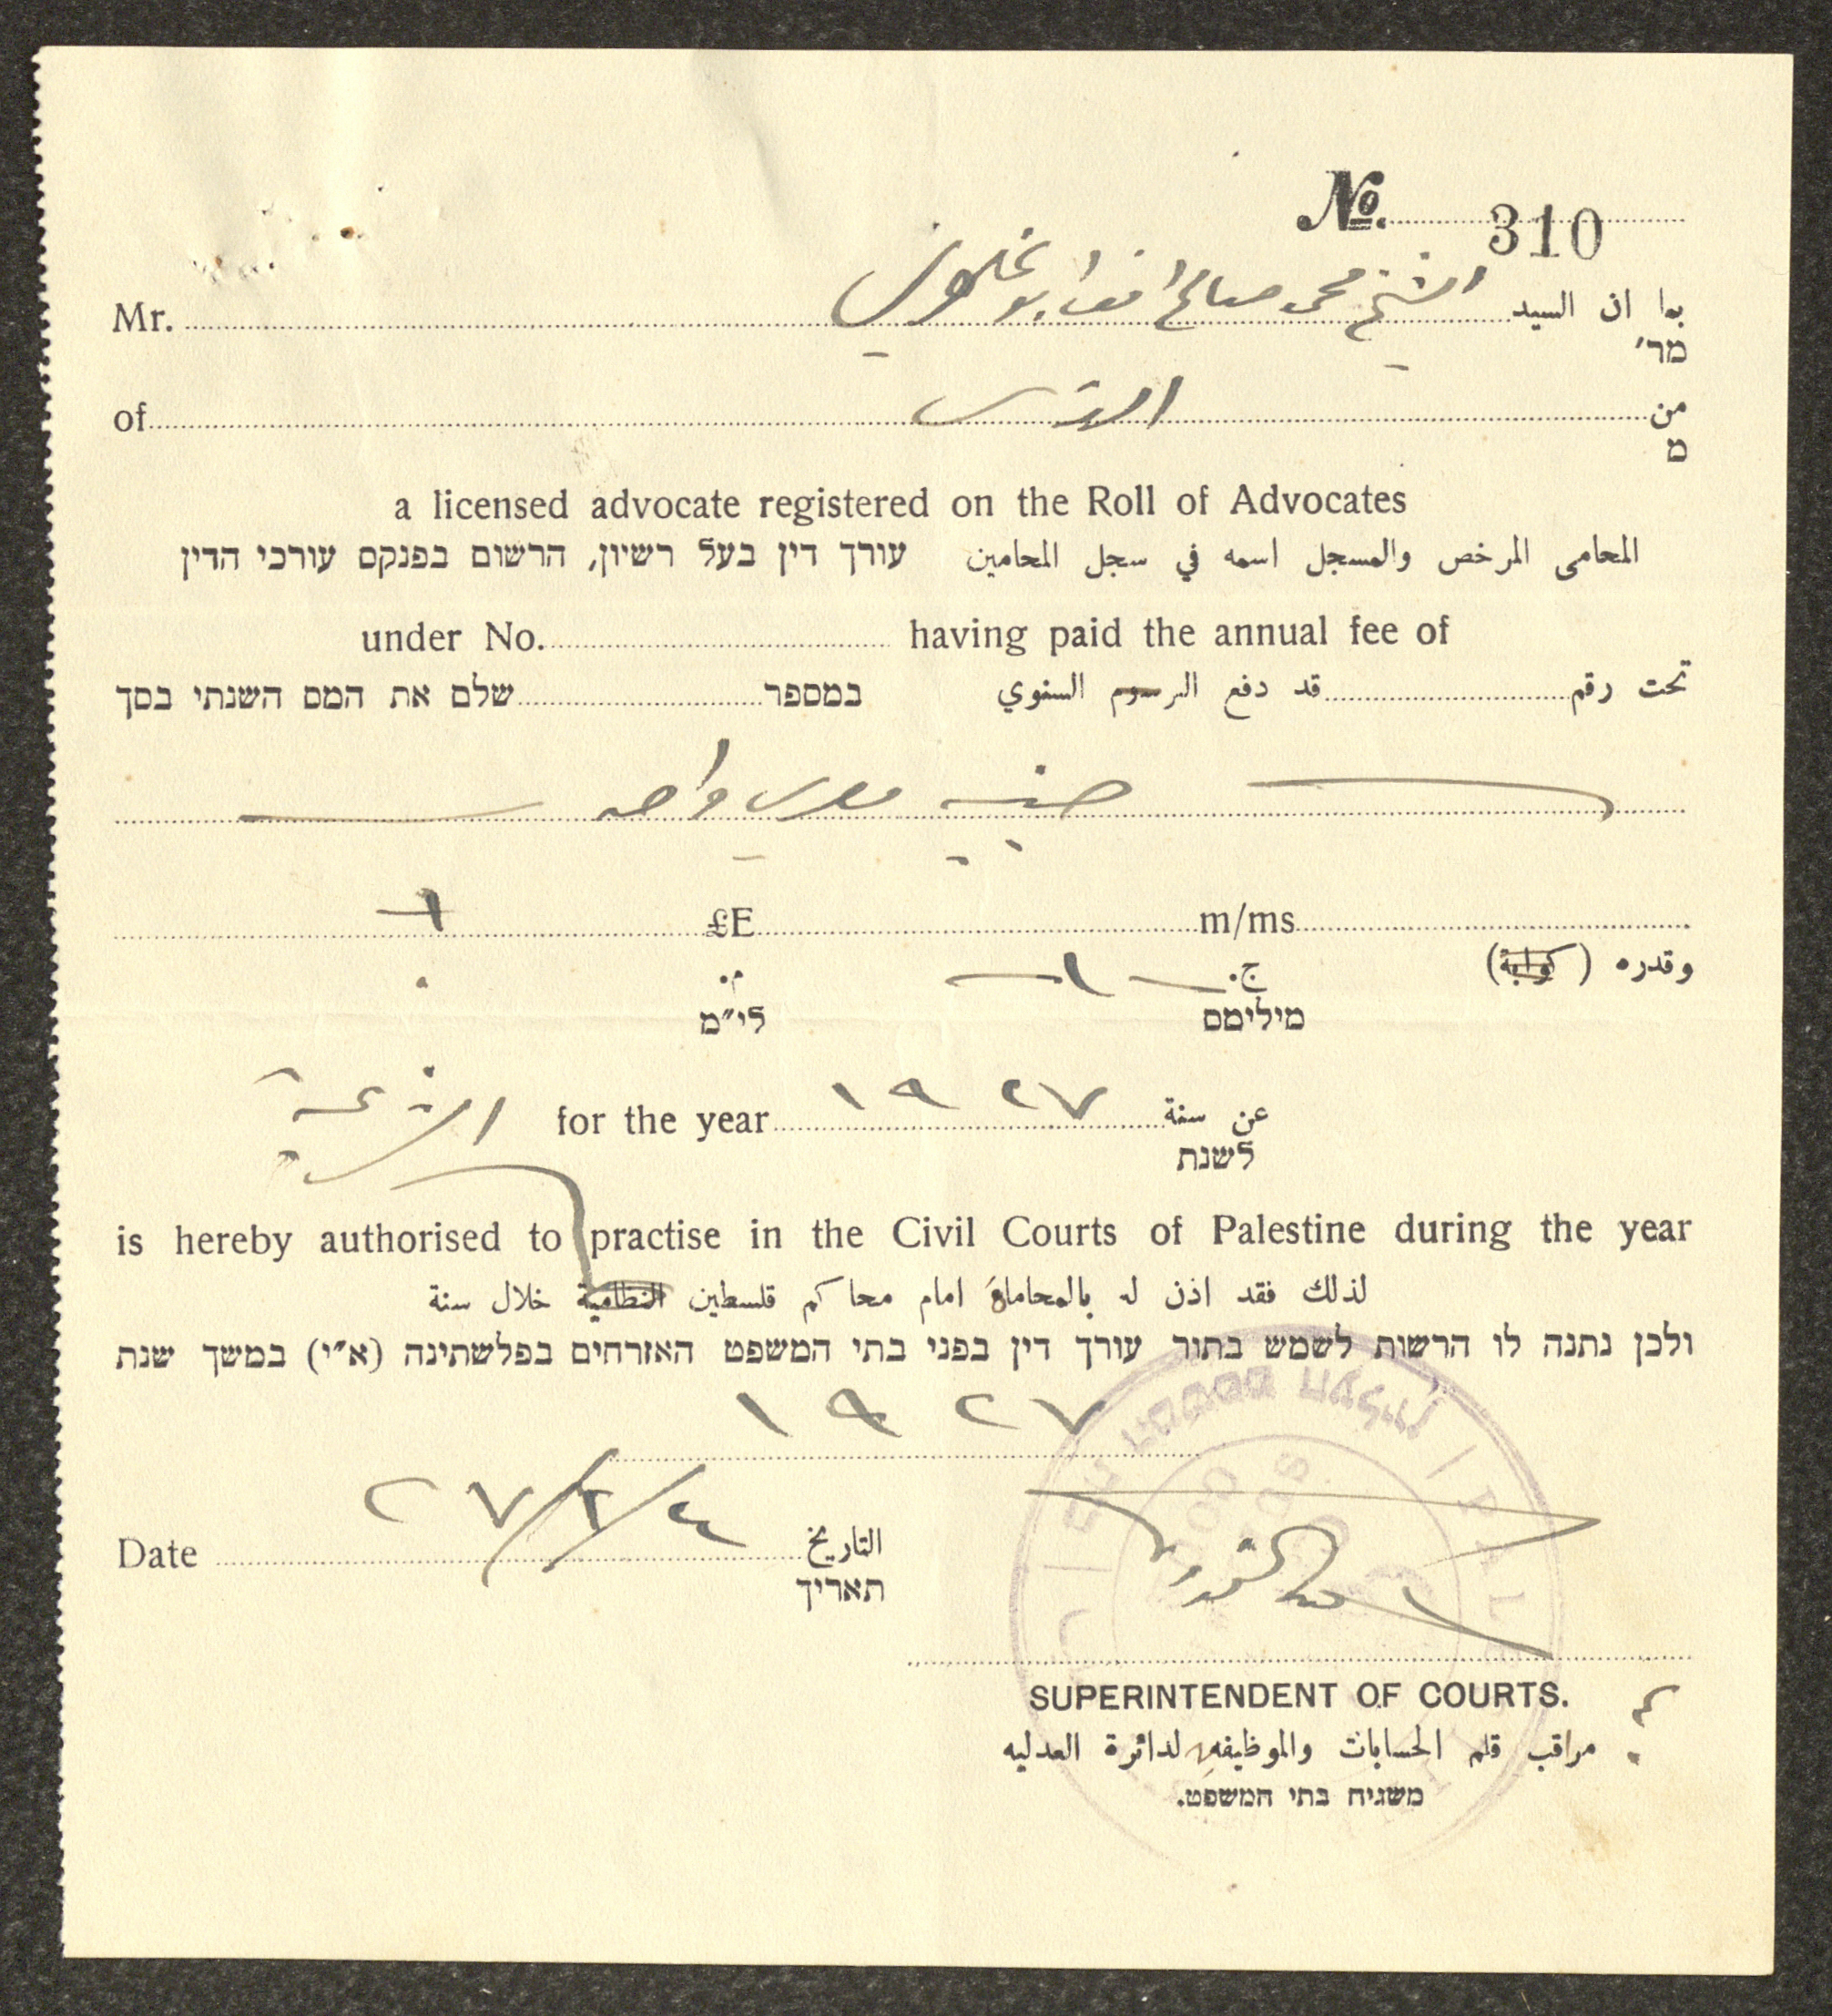 No. 310
Mr. الشيخ محمد صالح افندي ابو خلوي بما ان السيد
מר׳
of القدس من
מ
a licensed advocate registered on the Roll of Advocates
المحامى المرخص والمسجل اسمه في سجل المحامين עורך דין בעל רשיון, הרשום בפנקס עורכי הדין
under No. having paid the annual fee of
تحت رقم قد دفع الرسوم السنوي במספר שלם את המס השנתי בסך
جنيه مصري واحد
١ £E m/ms
وقدره (كتابة) ج. ١ م.
מילימס לי״מ
الشرعية for the year ١٩٢٧ عن سنة
לשנת
is hereby authorised to practise in the Civil Courts of Palestine during the year
لذلك فقد اذن له بالمحاماة امام محاكم فلسطين النظامية خلال سنة
ולכן נתנה לו הרשות לשמש בתור עורך דין בפני בתי המשפט האזרחים בפלשתינה (א״י) במשך שנת
١٩٢٧
Date ٢٧/٢/٤ التاريخ
תאריך
SUPERINTENDENT OF COURTS.
مراقب قلم الحسابات والموظيفين لدائرة العدليه
משגיח בתי המשפט.